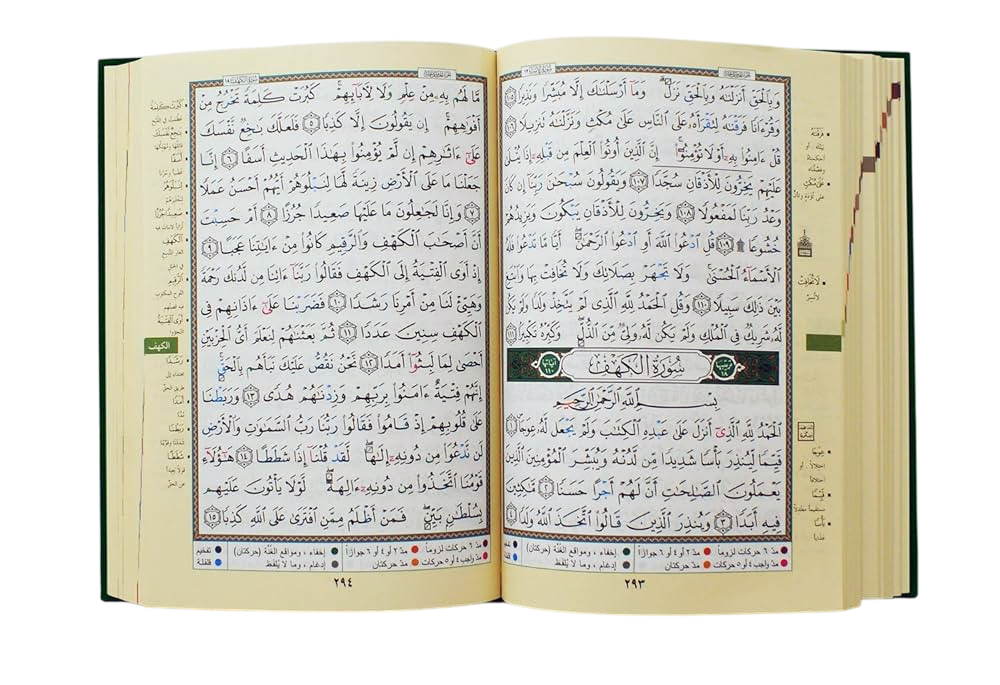 وَبِالْحَقِّ أَنزَلْنَٰهُ وَبِالْحَقِّ نَزَلَ ۗ وَمَا أَرْسَلْنَٰكَ إِلَّا مُبَشِّرًا وَنَذِيرًا ١٠٥
وَقُرْءَانًا فَرَقْنَٰهُ لِتَقْرَأَهُ عَلَى النَّاسِ عَلَىٰ مُكْثٍ وَنَزَّلْنَٰهُ تَنزِيلًا ١٠٦
قُلْ ءَامِنُوا بِهِ أَوْ لَا تُؤْمِنُوا ۚ إِنَّ الَّذِينَ أُوتُوا الْعِلْمَ مِن قَبْلِهِ إِذَا يُتْلَىٰ
عَلَيْهِمْ يَخِرُّونَ لِلْأَذْقَانِ سُجَّدًا ١٠٧ وَيَقُولُونَ سُبْحَٰنَ رَبِّنَا إِن كَانَ
وَعْدُ رَبِّنَا لَمَفْعُولًا ١٠٨ وَيَخِرُّونَ لِلْأَذْقَانِ يَبْكُونَ وَيَزِيدُهُمْ
خُشُوعًا ۩ ١٠٩ قُلِ ادْعُوا اللَّهَ أَوِ ادْعُوا الرَّحْمَٰنَ ۖ أَيًّا مَّا تَدْعُوا فَلَهُ
الْأَسْمَاءُ الْحُسْنَىٰ ۚ وَلَا تَجْهَرْ بِصَلَاتِكَ وَلَا تُخَافِتْ بِهَا وَابْتَغِ
بَيْنَ ذَٰلِكَ سَبِيلًا ١١٠ وَقُلِ الْحَمْدُ لِلَّهِ الَّذِي لَمْ يَتَّخِذْ وَلَدًا وَلَمْ يَكُن
لَّهُ شَرِيكٌ فِي الْمُلْكِ وَلَمْ يَكُن لَّهُ وَلِيٌّ مِّنَ الذُّلِّ ۖ وَكَبِّرْهُ تَكْبِيرًا ١١١
سُورَةُ الْكَهْفِ
بِسْمِ اللَّهِ الرَّحْمَٰنِ الرَّحِيمِ
الْحَمْدُ لِلَّهِ الَّذِي أَنزَلَ عَلَىٰ عَبْدِهِ الْكِتَٰبَ وَلَمْ يَجْعَل لَّهُ عِوَجًا ١
قَيِّمًا لِّيُنذِرَ بَأْسًا شَدِيدًا مِّن لَّدُنْهُ وَيُبَشِّرَ الْمُؤْمِنِينَ الَّذِينَ
يَعْمَلُونَ الصَّٰلِحَٰتِ أَنَّ لَهُمْ أَجْرًا حَسَنًا ٢ مَّٰكِثِينَ
فِيهِ أَبَدًا ٣ وَيُنذِرَ الَّذِينَ قَالُوا اتَّخَذَ اللَّهُ وَلَدًا ٤
مدّ ٦ حركات لزوماً مدّ ٢ أو ٤ أو ٦ جوازاً إخفاء ، ومواقع الغنّة (حركتان) تفخيم
مدّ واجب ٤ أو ٥ حركات مدّ حركتان إدغام ، وما لا يُلفظ قلقلة
٢٩٣
مَّا لَهُم بِهِ مِنْ عِلْمٍ وَلَا لِءَابَائِهِمْ ۚ كَبُرَتْ كَلِمَةً تَخْرُجُ مِنْ
أَفْوَٰهِهِمْ ۚ إِن يَقُولُونَ إِلَّا كَذِبًا ٥ فَلَعَلَّكَ بَٰخِعٌ نَّفْسَكَ
عَلَىٰ ءَاثَٰرِهِمْ إِن لَّمْ يُؤْمِنُوا بِهَٰذَا الْحَدِيثِ أَسَفًا ٦ إِنَّا
جَعَلْنَا مَا عَلَى الْأَرْضِ زِينَةً لَّهَا لِنَبْلُوَهُمْ أَيُّهُمْ أَحْسَنُ عَمَلًا
٧ وَإِنَّا لَجَٰعِلُونَ مَا عَلَيْهَا صَعِيدًا جُرُزًا ٨ أَمْ حَسِبْتَ
أَنَّ أَصْحَٰبَ الْكَهْفِ وَالرَّقِيمِ كَانُوا مِنْ ءَايَٰتِنَا عَجَبًا ٩
إِذْ أَوَى الْفِتْيَةُ إِلَى الْكَهْفِ فَقَالُوا رَبَّنَا ءَاتِنَا مِن لَّدُنكَ رَحْمَةً
وَهَيِّئْ لَنَا مِنْ أَمْرِنَا رَشَدًا ١٠ فَضَرَبْنَا عَلَىٰ ءَاذَانِهِمْ فِي
الْكَهْفِ سِنِينَ عَدَدًا ١١ ثُمَّ بَعَثْنَٰهُمْ لِنَعْلَمَ أَيُّ الْحِزْبَيْنِ
أَحْصَىٰ لِمَا لَبِثُوا أَمَدًا ١٢ نَّحْنُ نَقُصُّ عَلَيْكَ نَبَأَهُم بِالْحَقِّ ۚ
إِنَّهُمْ فِتْيَةٌ ءَامَنُوا بِرَبِّهِمْ وَزِدْنَٰهُمْ هُدًى ١٣ وَرَبَطْنَا
عَلَىٰ قُلُوبِهِمْ إِذْ قَامُوا فَقَالُوا رَبُّنَا رَبُّ السَّمَٰوَٰتِ وَالْأَرْضِ
لَن نَّدْعُوَا مِن دُونِهِ إِلَٰهًا ۖ لَّقَدْ قُلْنَا إِذًا شَطَطًا ١٤ هَٰؤُلَاءِ
قَوْمُنَا اتَّخَذُوا مِن دُونِهِ ءَالِهَةً ۖ لَّوْلَا يَأْتُونَ عَلَيْهِم
بِسُلْطَٰنٍ بَيِّنٍ ۖ فَمَنْ أَظْلَمُ مِمَّنِ افْتَرَىٰ عَلَى اللَّهِ كَذِبًا ١٥
الكهف
مدّ ٦ حركات لزوماً مدّ ٢ أو ٤ أو ٦ جوازاً إخفاء ، ومواقع الغنّة (حركتان) تفخيم
مدّ واجب ٤ أو ٥ حركات مدّ حركتان إدغام ، وما لا يُلفظ قلقلة
٢٩٤